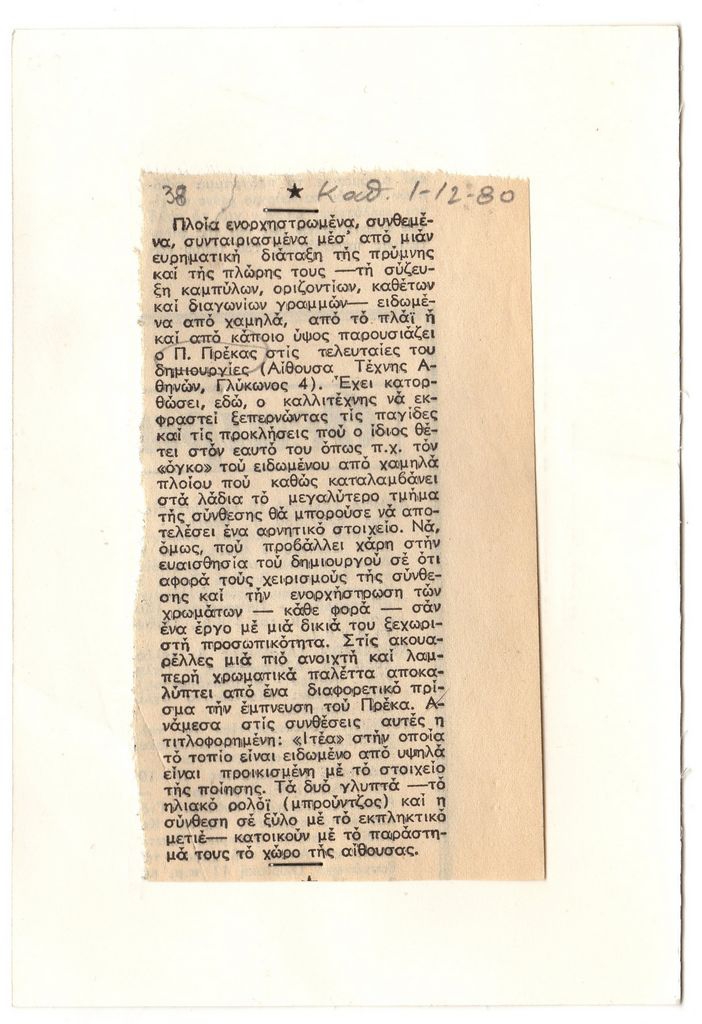 38 ★ Καθ. 1-12-80
Πλοία ενορχηστρωμένα, συνθεμέ-
να, συνταιριασμένα μέσ' από μιάν
ευρηματική διάταξη τής πρύμνης
καί τής πλώρης τους —τή σύζευ-
ξη καμπύλων, οριζοντίων, καθέτων
καί διαγωνίων γραμμών— ειδωμέ-
να από χαμηλά, από τό πλάϊ ή
καί από κάποιο ύψος παρουσιάζει
ο Π. Πρέκας στίς τελευταίες του
δημιουργίες (Αίθουσα Τέχνης Α-
θηνών, Γλύκωνος 4). Έχει κατορ-
θώσει, εδώ, ο καλλιτέχνης νά εκ-
φραστεί ξεπερνώντας τίς παγίδες
καί τίς προκλήσεις πού ο ίδιος θέ-
τει στόν εαυτό του όπως π.χ. τόν
«όγκο» τού ειδωμένου από χαμηλά
πλοίου πού καθώς καταλαμβάνει
στά λάδια τό μεγαλύτερο τμήμα
τής σύνθεσης θά μπορούσε νά απο-
τελέσει ένα αρνητικό στοιχείο. Νά,
όμως, πού προβάλλει χάρη στήν
ευαισθησία τού δημιουργού σέ ότι
αφορά τούς χειρισμούς τής σύνθε-
σης καί τήν ενορχήστρωση τών
χρωμάτων — κάθε φορά — σάν
ένα έργο μέ μιά δικιά του ξεχωρι-
στή προσωπικότητα. Στίς ακουα-
ρέλλες μιά πιό ανοιχτή καί λαμ-
περή χρωματικά παλέττα αποκα-
λύπτει από ένα διαφορετικό πρί-
σμα τήν έμπνευση τού Πρέκα. Α-
νάμεσα στίς συνθέσεις αυτές η
τιτλοφορημένη: «Ιτέα» στήν οποία
τό τοπίο είναι ειδωμένο από υψηλά
είναι προικισμένη μέ τό στοιχείο
τής ποίησης. Τά δυό γλυπτά —τό
ηλιακό ρολόϊ (μπρούντζος) καί η
σύνθεση σέ ξύλο μέ τό εκπληκτικό
μετιέ— κατοικούν μέ τό παράστη-
μά τους τό χώρο τής αίθουσας.